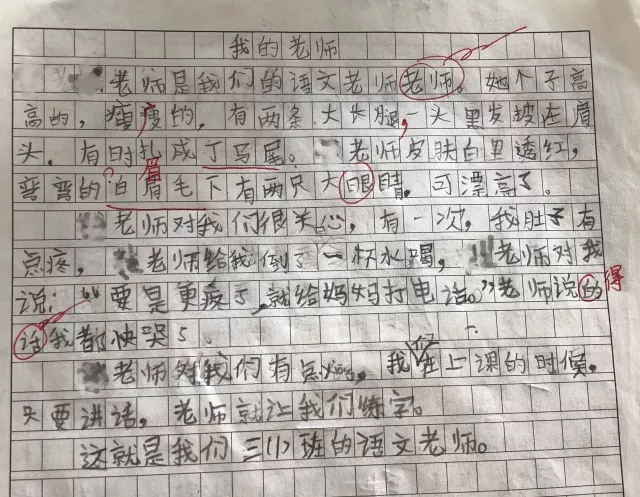 我的老师
老师是我们的语文老师老师。她个子高
高的，瘦瘦的，有两条大长腿，一头黑发披在眉
头，有时扎成丁马尾。老师皮肤白里透红，
弯弯的眉毛下有两只大眼睛，可漂亮了。
老师对我们很关心，有一次，我肚子有
点疼，老师给我倒了一杯水喝，老师对我
说：“要是更疼了，就给妈妈打电话。”老师说的得
话我都快哭了。
老师对我们有点凶，我们在上课的时候，
只要讲话，老师就让我们练字。
这就是我们三(1)班的语文老师。